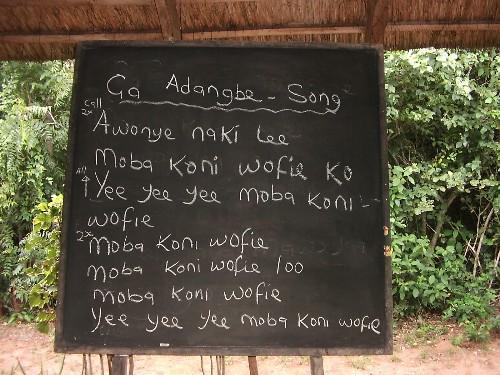 Ga Adangbe - Song
Call
2x
Awonye naki lee
Moba Koni wofie Ko
All
Yee yee yee moba Koni -
wofie
2x
Moba Koni wofie
Moba Koni wofie loo
Moba Koni wofie
Yee yee yee moba Koni wofie